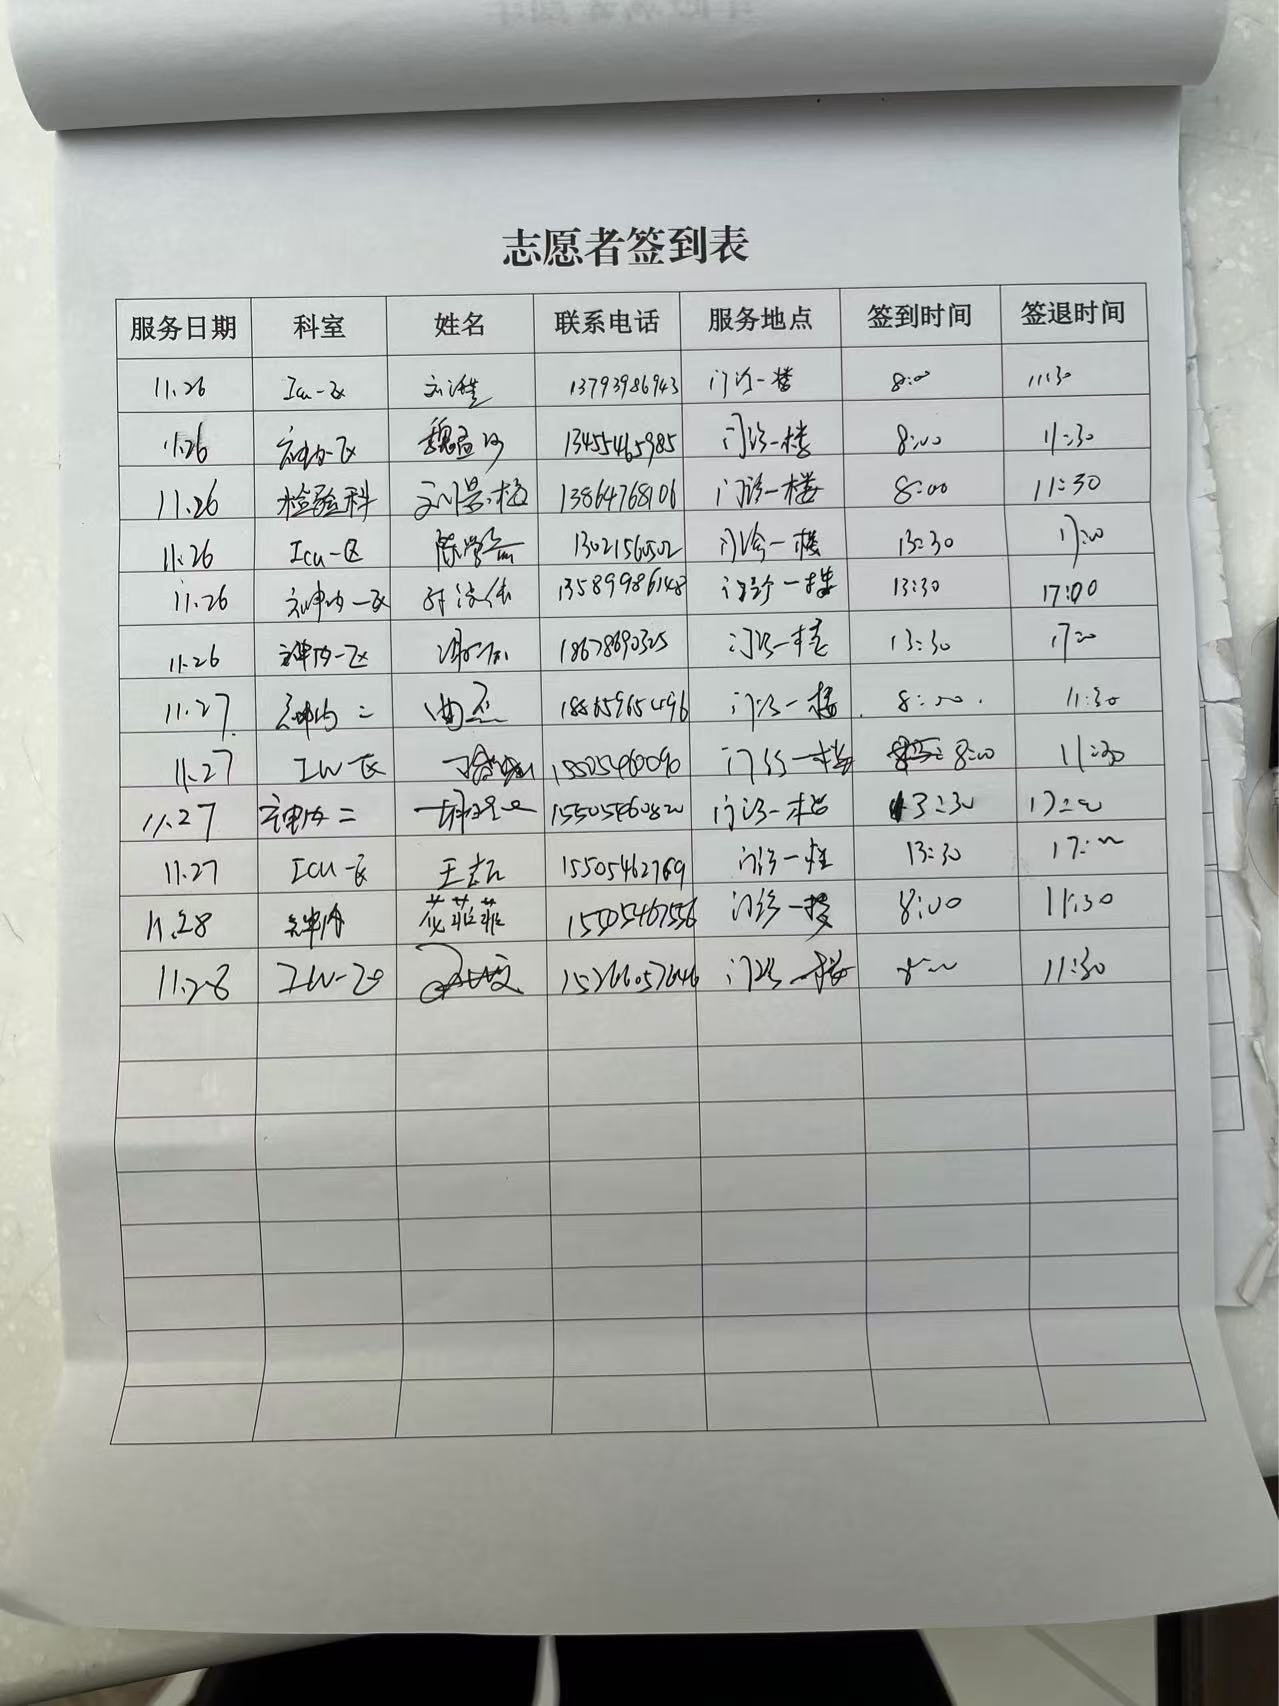 志愿者签到表
服务日期 科室 姓名 联系电话 服务地点 签到时间 签退时间
11.26 Icu一区 13793986943 门诊一楼 8:00 11:30
11.26 神内一区 魏孟 13455465985 门诊一楼 8:00 11:30
11.26 检验科 刘景 13864768106 门诊一楼 8:00 11:30
11.26 Icu一区 陈学 13021560502 门诊一楼 13:30 17:00
11.26 神内一区 13589986148 门诊一楼 13:30 17:00
11.26 神内一区 18678690325 门诊一楼 13:30 17:00
11.27 神内二 曲 门诊一楼 8:00 11:30
11.27 ICU一区 门诊一楼 8:00 11:30
11.27 神内二 15505460820 门诊一楼 13:30 17:00
11.27 ICU一区 王 15505462769 门诊一楼 13:30 17:00
11.28 神内 花菲菲 15505467556 门诊一楼 8:00 11:30
11.28 ICU一区 15266057646 门诊一楼 8:00 11:30